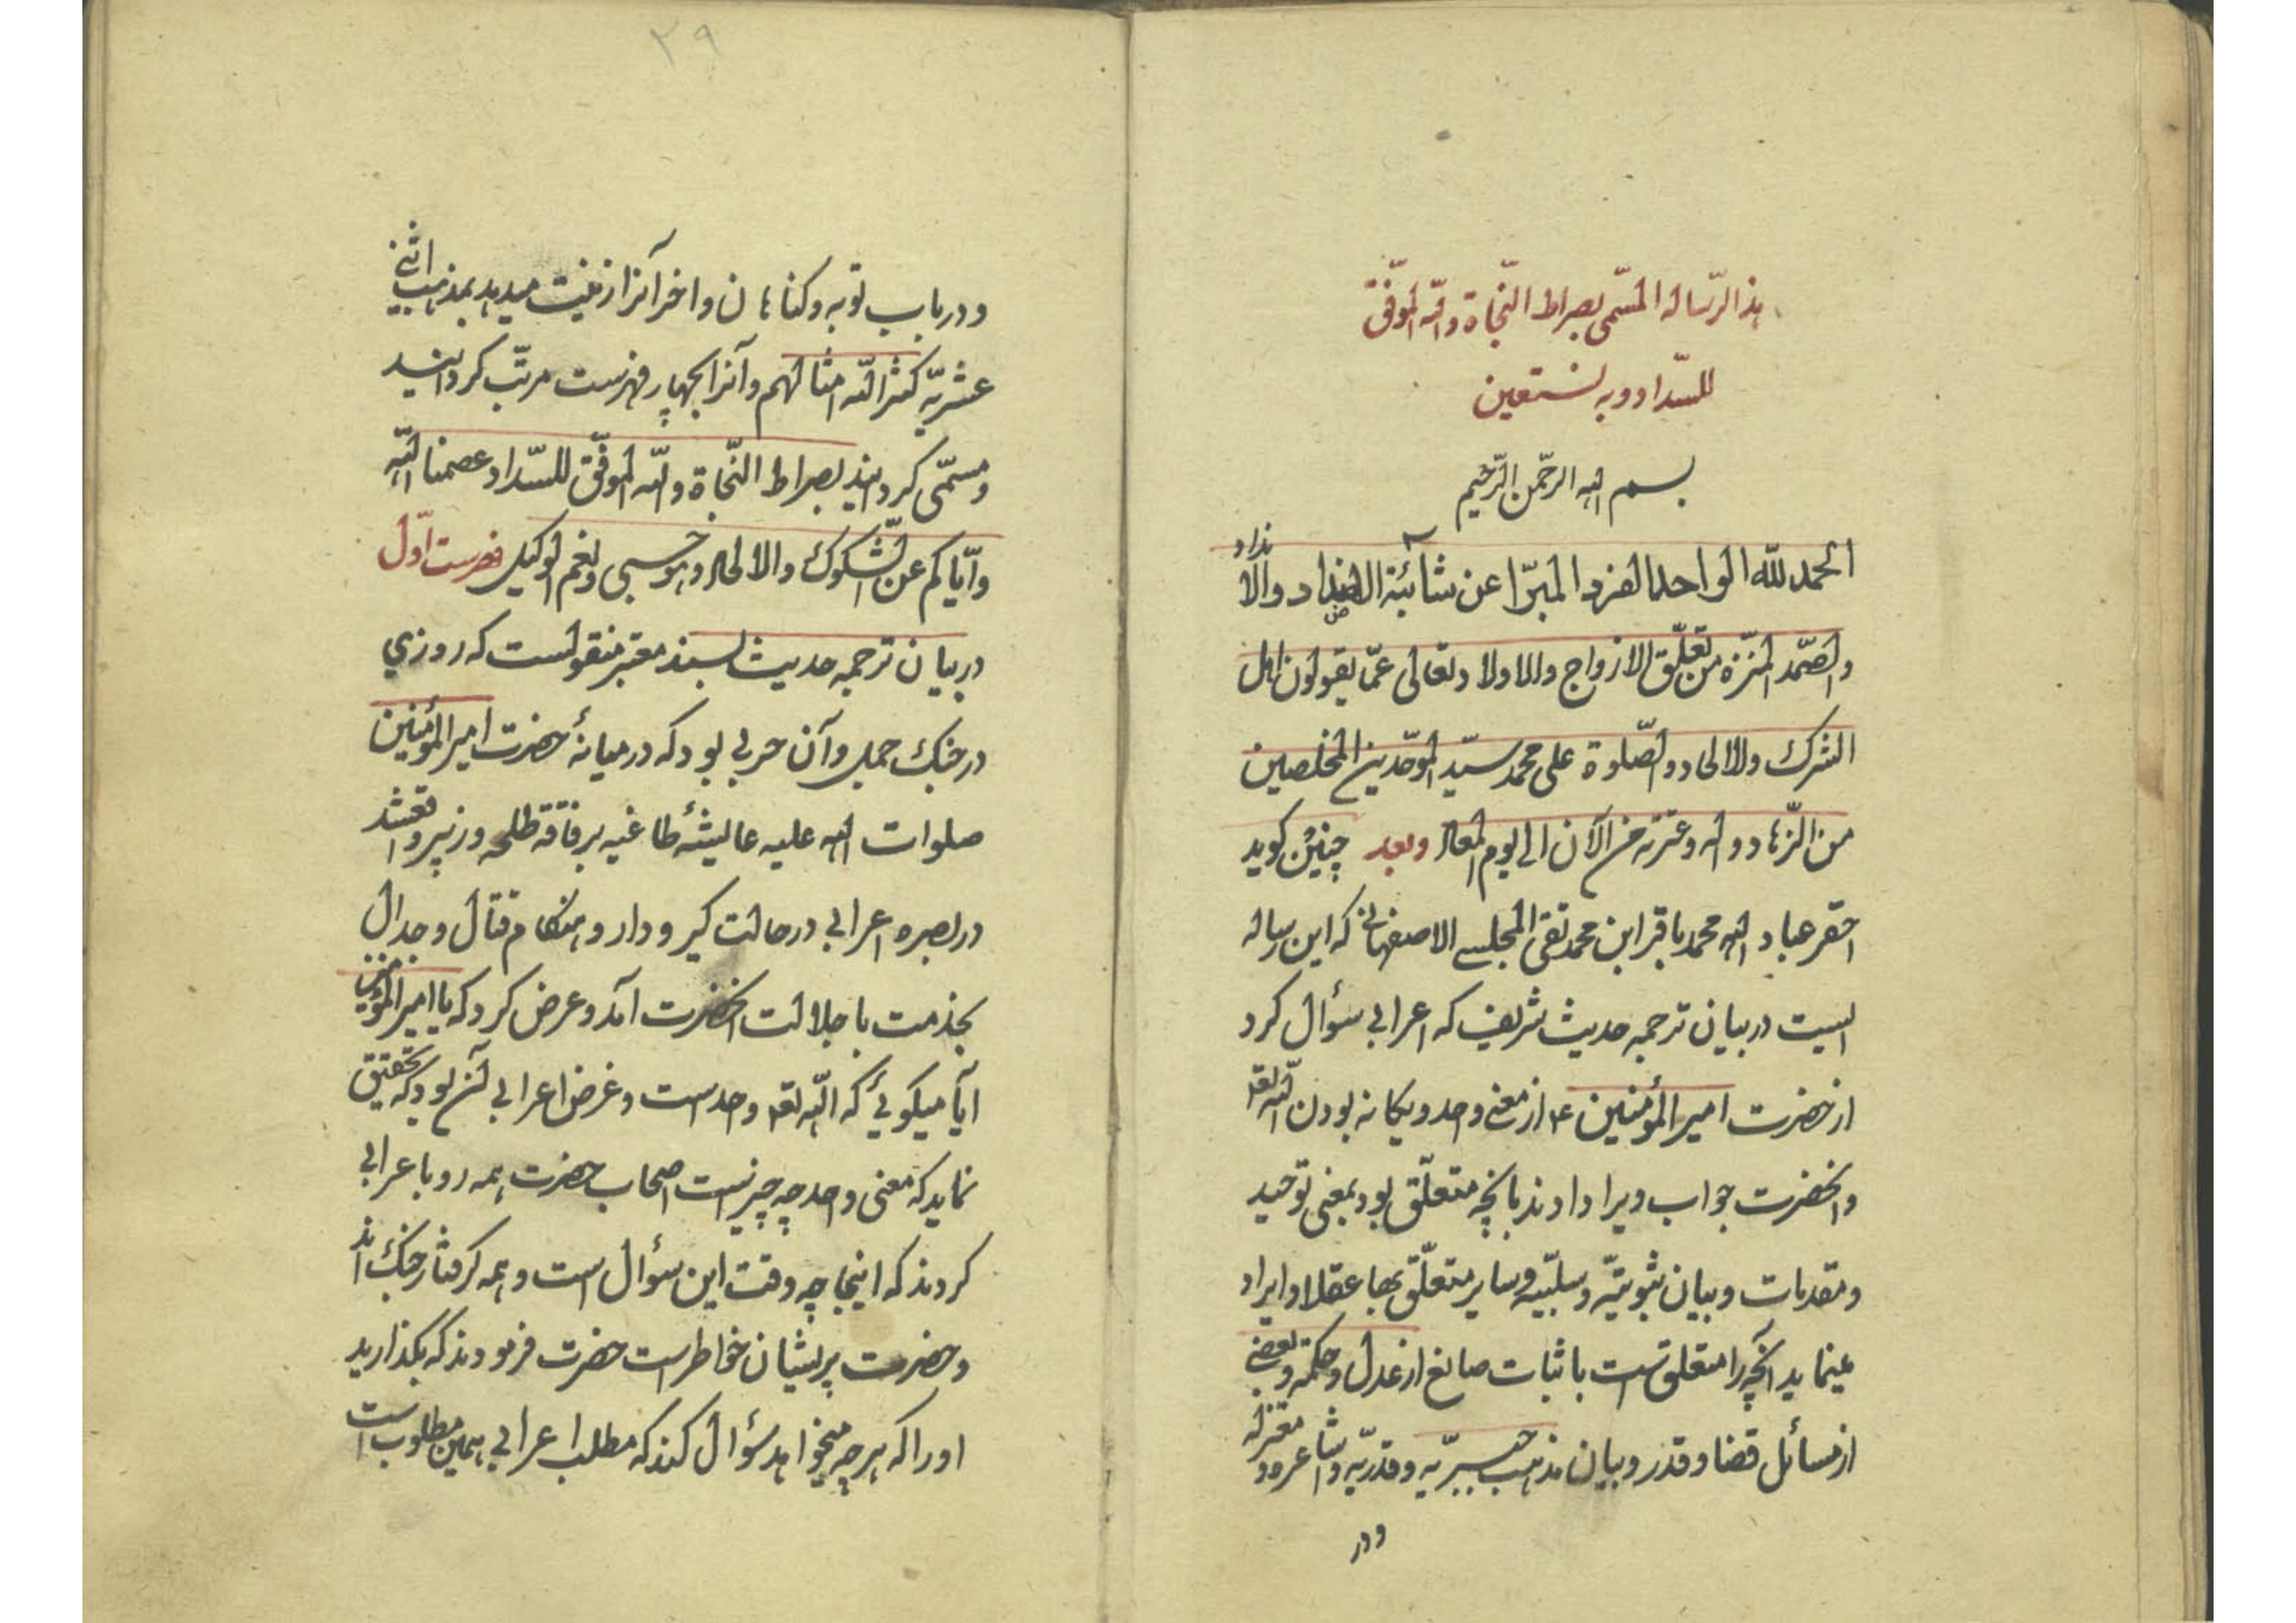 هذا الرّساله المسمّی بصراط النّجاة واللّه الموفّق
للسّداد وبه نستعین
بسم الله الرّحمن الرّحیم
الحمد للّه الواحد الفرد المبرّا عن شائبة الاضداد والانداد
والصّمد المنزّه من تعلّق الازواج والاولاد وتعالی عمّا یقولون اهل
الشرك والالحاد والصّلوة علی محمد سیّد الموحّدین المخلصین
من الزّهاد وآله وعترته من الآن الی یوم المعاد وبعد چنین کوید
احقر عباد الله محمد باقر ابن محمد تقی المجلسے الاصفهانی که این رساله
ایست در بیان ترجمه حدیث شریف که اعرابی سؤال کرد
از حضرت امیر المؤمنین ع از معنی واحد ویکانه بودن اللّه تعه
وانحضرت جواب ویرا دادند بانچه متعلّق بود بمعنی توحید
ومقدمات وبیان ثبوتیّه وسلبیّه وسایر متعلّق بها عقلا وایراد
مینماید آنچه را متعلق است باثبات صانع از عدل وحکمة وبعضی
از مسائل قضا وقدر وبیان مذهب جبریّه وقدریّه واشاعره ومعتزله
ودر
۲۹
ودر باب توبه وکناهان واخر آنرا زینت میدهد بمذهب اثنی
عشریّه کثر اللّه امثالهم وآنرا بچهار فهرست مرتّب کردانید
ومسمّی کردانید بصراط النّجاة واللّه الموفّق للسّداد عصمنا اللّه
وایّاکم عن الشّکوك والالحاد وهو حسبی ونعم الوکیل فهرست اوّل
در بیان ترجمه حدیث بسند معتبر منقولست که روزی
در جنك جمل وآن حربی بود که در میانۀ حضرت امیر المؤمنین
صلوات الله علیه عایشۀ طاغیه برفاقة طلحه وزبیر واقعشد
در بصره اعرابی در حالت کیر ودار وهنکام قتال وجدال
بخدمت با جلالت انحضرت آمد وعرض کرد که یا امیر المؤمنین
آیا میکوئی که اللّه تعه واحد است وغرض اعرابی آن بود که تحقیق
نماید که معنی واحد چه چیز است اصحاب حضرت همه رو باعرابی
کردند که اینجا چه وقت این سؤال است وهمه کرفتار جنك اند
وحضرت پریشان خاطر است حضرت فرمودند که بکذارید
اورا که هر چه میخواهد سؤال کند که مطلب اعرابی همین مطلوب است